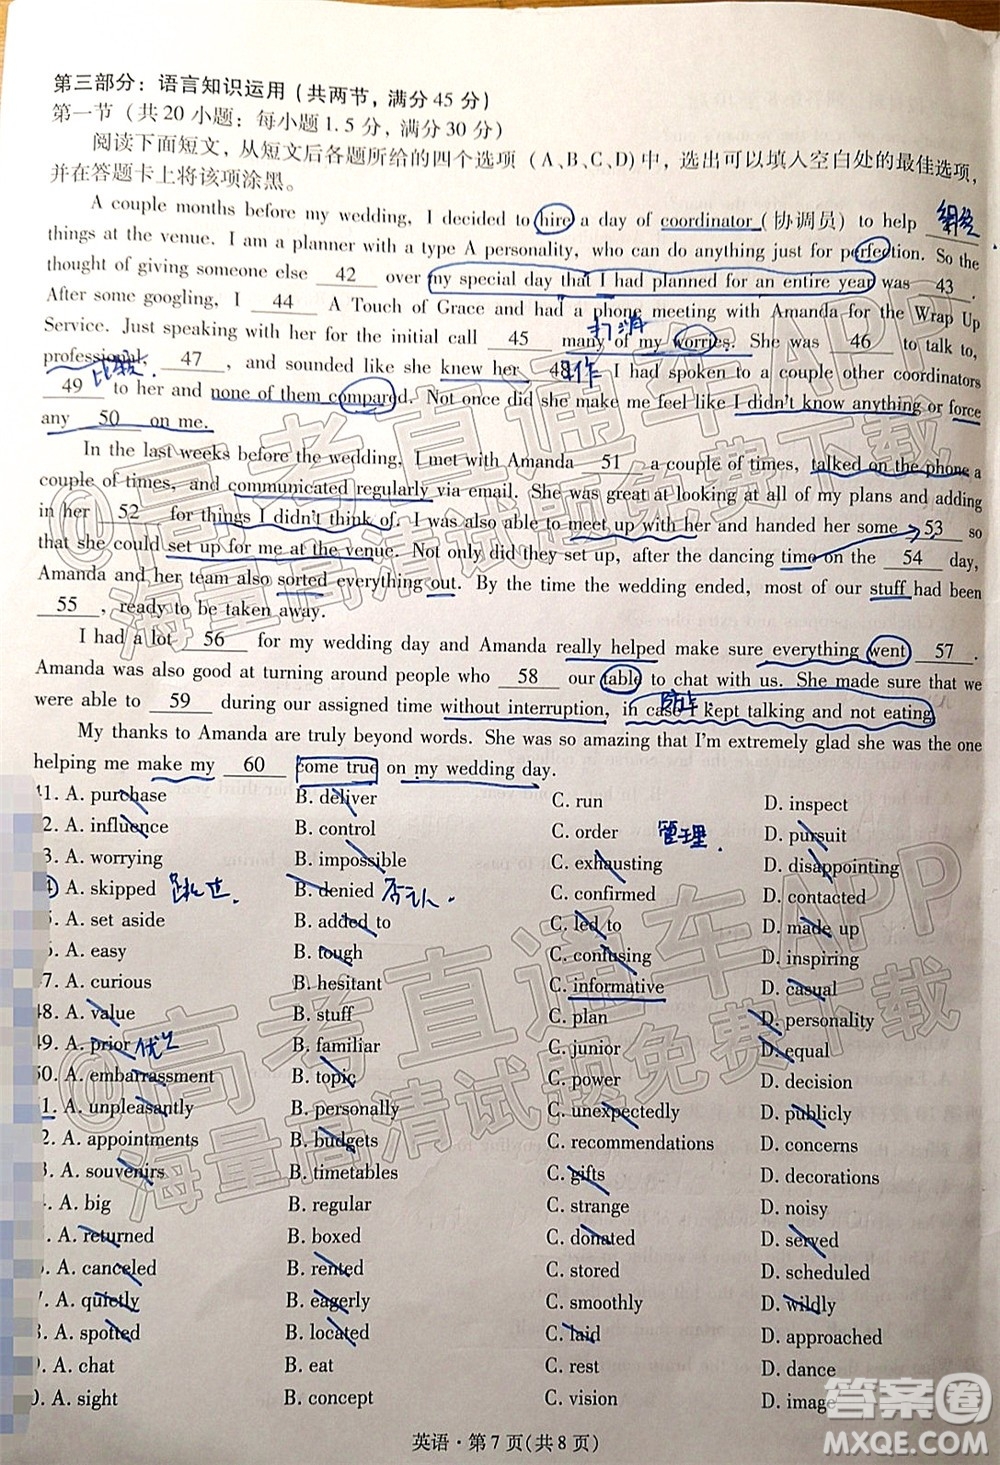 第三部分：语言知识运用（共两节，满分45分）
第一节（共20小题：每小题1.5分，满分30分）
阅读下面短文，从短文后各题所给的四个选项（A、B、C、D）中，选出可以填入空白处的最佳选项，
并在答题卡上将该项涂黑。
A couple months before my wedding, I decided to hire a day of coordinator (协调员) to help
things at the venue. I am a planner with a type A personality, who can do anything just for perfection. So the
thought of giving someone else 42 over my special day that I had planned for an entire year was 43 .
After some googling, I 44 A Touch of Grace and had a phone meeting with Amanda for the Wrap Up
打消
Service. Just speaking with her for the initial call 45 many of my worries. She was 46 to talk to,
professional, 47 , and sounded like she knew her 48 . I had spoken to a couple other coordinators
比较
工作
49 to her and none of them compared. Not once did she make me feel like I didn't know anything or force
any 50 on me.
In the last weeks before the wedding, I met with Amanda 51 a couple of times, talked on the phone a
couple of times, and communicated regularly via email. She was great at looking at all of my plans and adding
in her 52 for things I didn't think of. I was also able to meet up with her and handed her some 53 so
that she could set up for me at the venue. Not only did they set up, after the dancing time on the 54 day,
Amanda and her team also sorted everything out. By the time the wedding ended, most of our stuff had been
55 , ready to be taken away.
I had a lot 56 for my wedding day and Amanda really helped make sure everything went 57 .
Amanda was also good at turning around people who 58 our table to chat with us. She made sure that we
were able to 59 during our assigned time without interruption, in case I kept talking and not eating.
防止
My thanks to Amanda are truly beyond words. She was so amazing that I'm extremely glad she was the one
helping me make my 60 come true on my wedding day.
41. A. purchase B. deliver C. run D. inspect
2. A. influence B. control C. order 管理 D. pursuit
3. A. worrying B. impossible C. exhausting D. disappointing
4 A. skipped 跳过 B. denied 否认 C. confirmed D. contacted
5. A. set aside B. added to C. led to D. made up
6. A. easy B. tough C. confusing D. inspiring
47. A. curious B. hesitant C. informative D. casual
48. A. value B. stuff C. plan D. personality
49. A. prior 优先 B. familiar C. junior D. equal
50. A. embarrassment B. topic C. power D. decision
51. A. unpleasantly B. personally C. unexpectedly D. publicly
2. A. appointments B. budgets C. recommendations D. concerns
3. A. souvenirs B. timetables C. gifts D. records
4. A. big B. regular C. strange D. noisy
5. A. returned B. boxed C. donated D. served
6. A. canceled B. rented C. stored D. scheduled
7. A. quietly B. eagerly C. smoothly D. wildly
8. A. spotted B. located C. laid D. approached
9. A. chat B. eat C. rest D. dance
0. A. sight B. concept C. vision D. image
英语·第7页(共8页)
@高考直通车APP
海量高清试题免费下载
@高考直通车APP
海量高清试题免费下载
答案圈
MXQE.COM